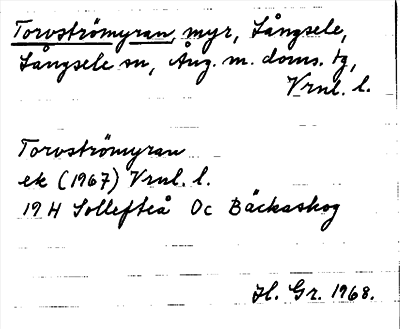 Torvströmyran, myr, Långsele,
Långsele sn, Ång. m. doms. tg,
Vrnl. l.
Torvströmyran
ek (1967) Vrnl. l.
19 H Sollefteå Oc Bäckaskog
Hl. Gr. 1968.